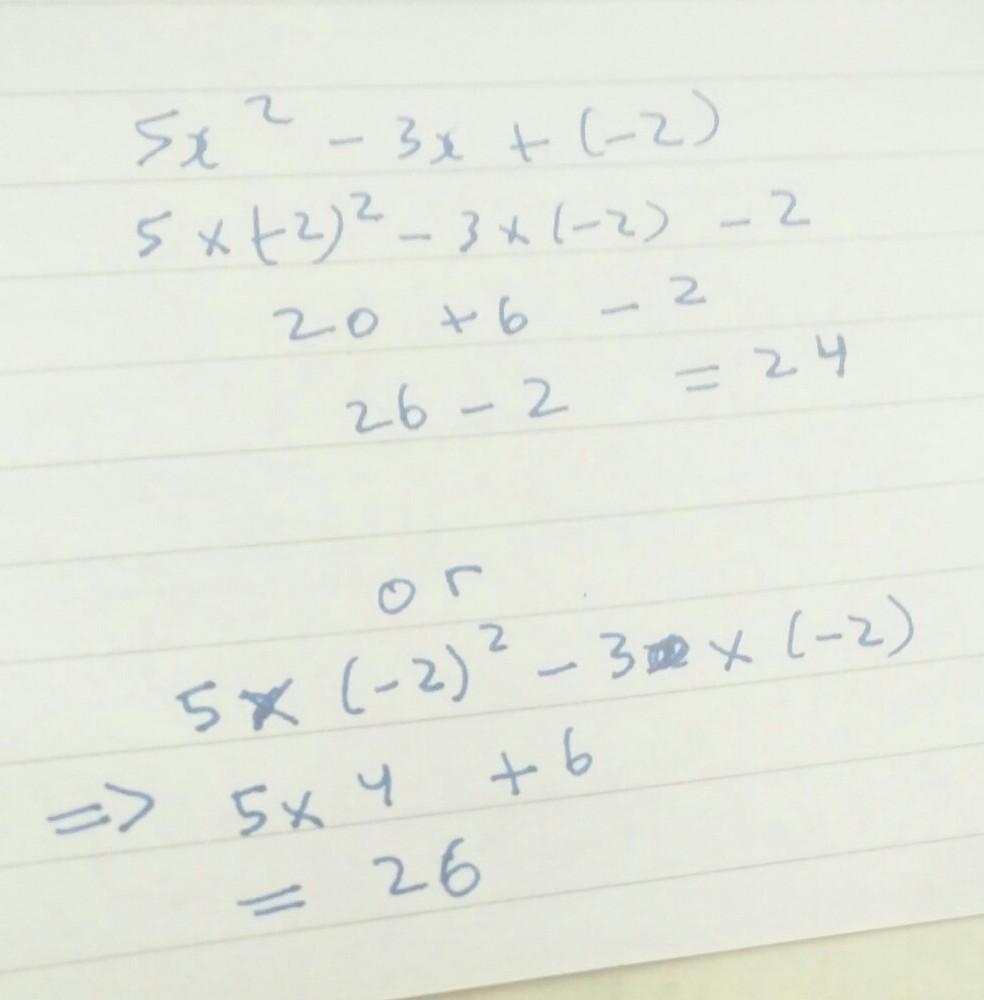 5x² - 3x + (-2)
5 × (-2)² - 3 × (-2) - 2
20 + 6 - 2
26 - 2 = 24
or
5 × (-2)² - 3 × (-2)
=> 5 × 4 + 6
= 26